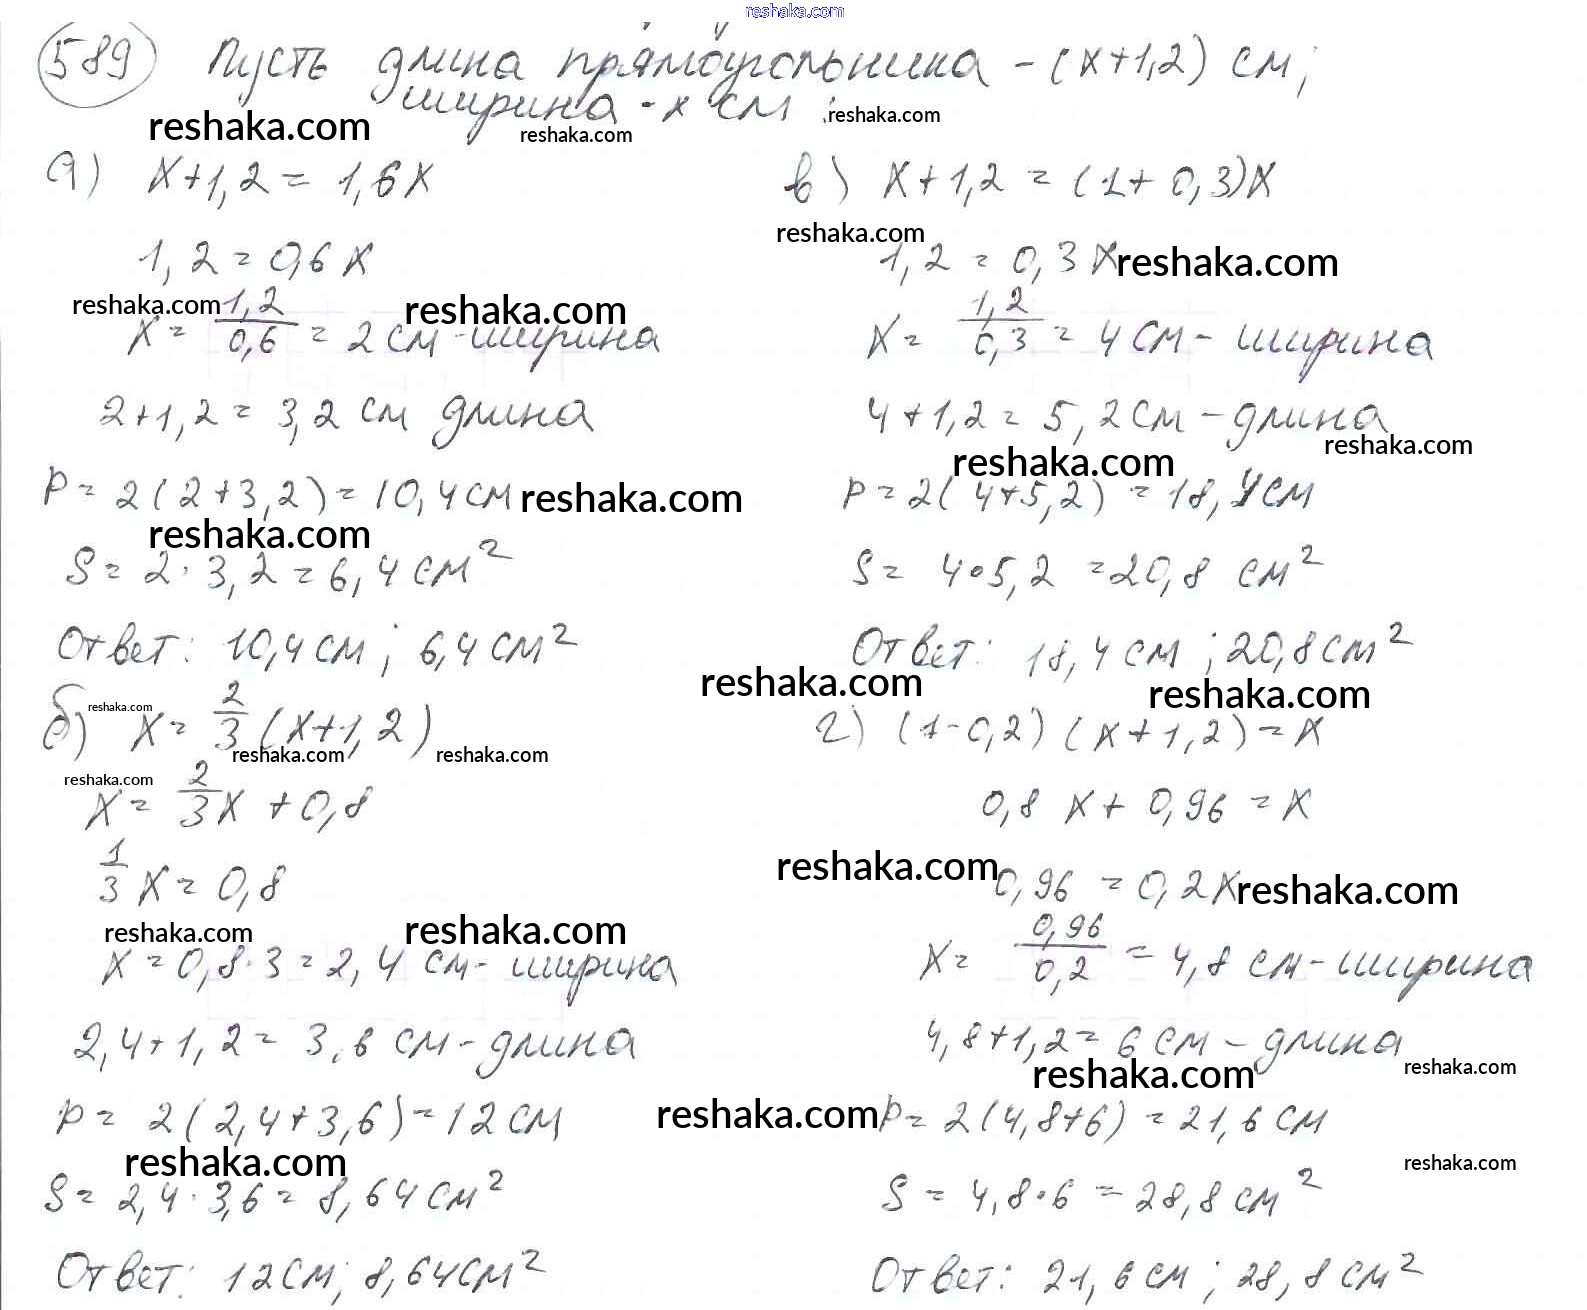 reshaka.com
589 Пусть длина прямоугольника - (x+1,2) см;
ширина - x см;
reshaka.com
reshaka.com
reshaka.com
а) x+1,2 = 1,6x
1,2 = 0,6x
reshaka.com
reshaka.com
x = 1,2/0,6 = 2 см - ширина
2+1,2 = 3,2 см длина
P = 2(2+3,2) = 10,4 см
reshaka.com
reshaka.com
S = 2·3,2 = 6,4 см²
Ответ: 10,4 см; 6,4 см²
б) x = 2/3 (x+1,2)
reshaka.com
reshaka.com
reshaka.com
reshaka.com
x = 2/3 x + 0,8
1/3 x = 0,8
reshaka.com
reshaka.com
x = 0,8·3 = 2,4 см - ширина
2,4+1,2 = 3,6 см - длина
P = 2(2,4+3,6) = 12 см
reshaka.com
reshaka.com
S = 2,4·3,6 = 8,64 см²
Ответ: 12 см; 8,64 см²
в) x+1,2 = (1+0,3)x
reshaka.com
1,2 = 0,3x
reshaka.com
x = 1,2/0,3 = 4 см - ширина
4+1,2 = 5,2 см - длина
reshaka.com
reshaka.com
P = 2(4+5,2) = 18,4 см
S = 4·5,2 = 20,8 см²
Ответ: 18,4 см; 20,8 см²
reshaka.com
reshaka.com
г) (1-0,2)(x+1,2) = x
0,8x + 0,96 = x
reshaka.com
0,96 = 0,2x
reshaka.com
x = 0,96/0,2 = 4,8 см - ширина
4,8+1,2 = 6 см - длина
reshaka.com
reshaka.com
P = 2(4,8+6) = 21,6 см
reshaka.com
S = 4,8·6 = 28,8 см²
Ответ: 21,6 см; 28,8 см²